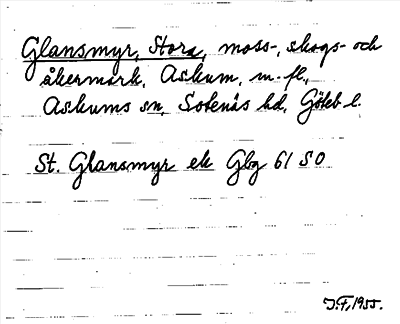 Glansmyr, Stora, moss-, skogs- och
åkermark, Askum, m. fl.,
Askums sn, Sotenäs hd, Göteb l.
St. Glansmyr ek Gbg 61 SO
J.F, 1955.